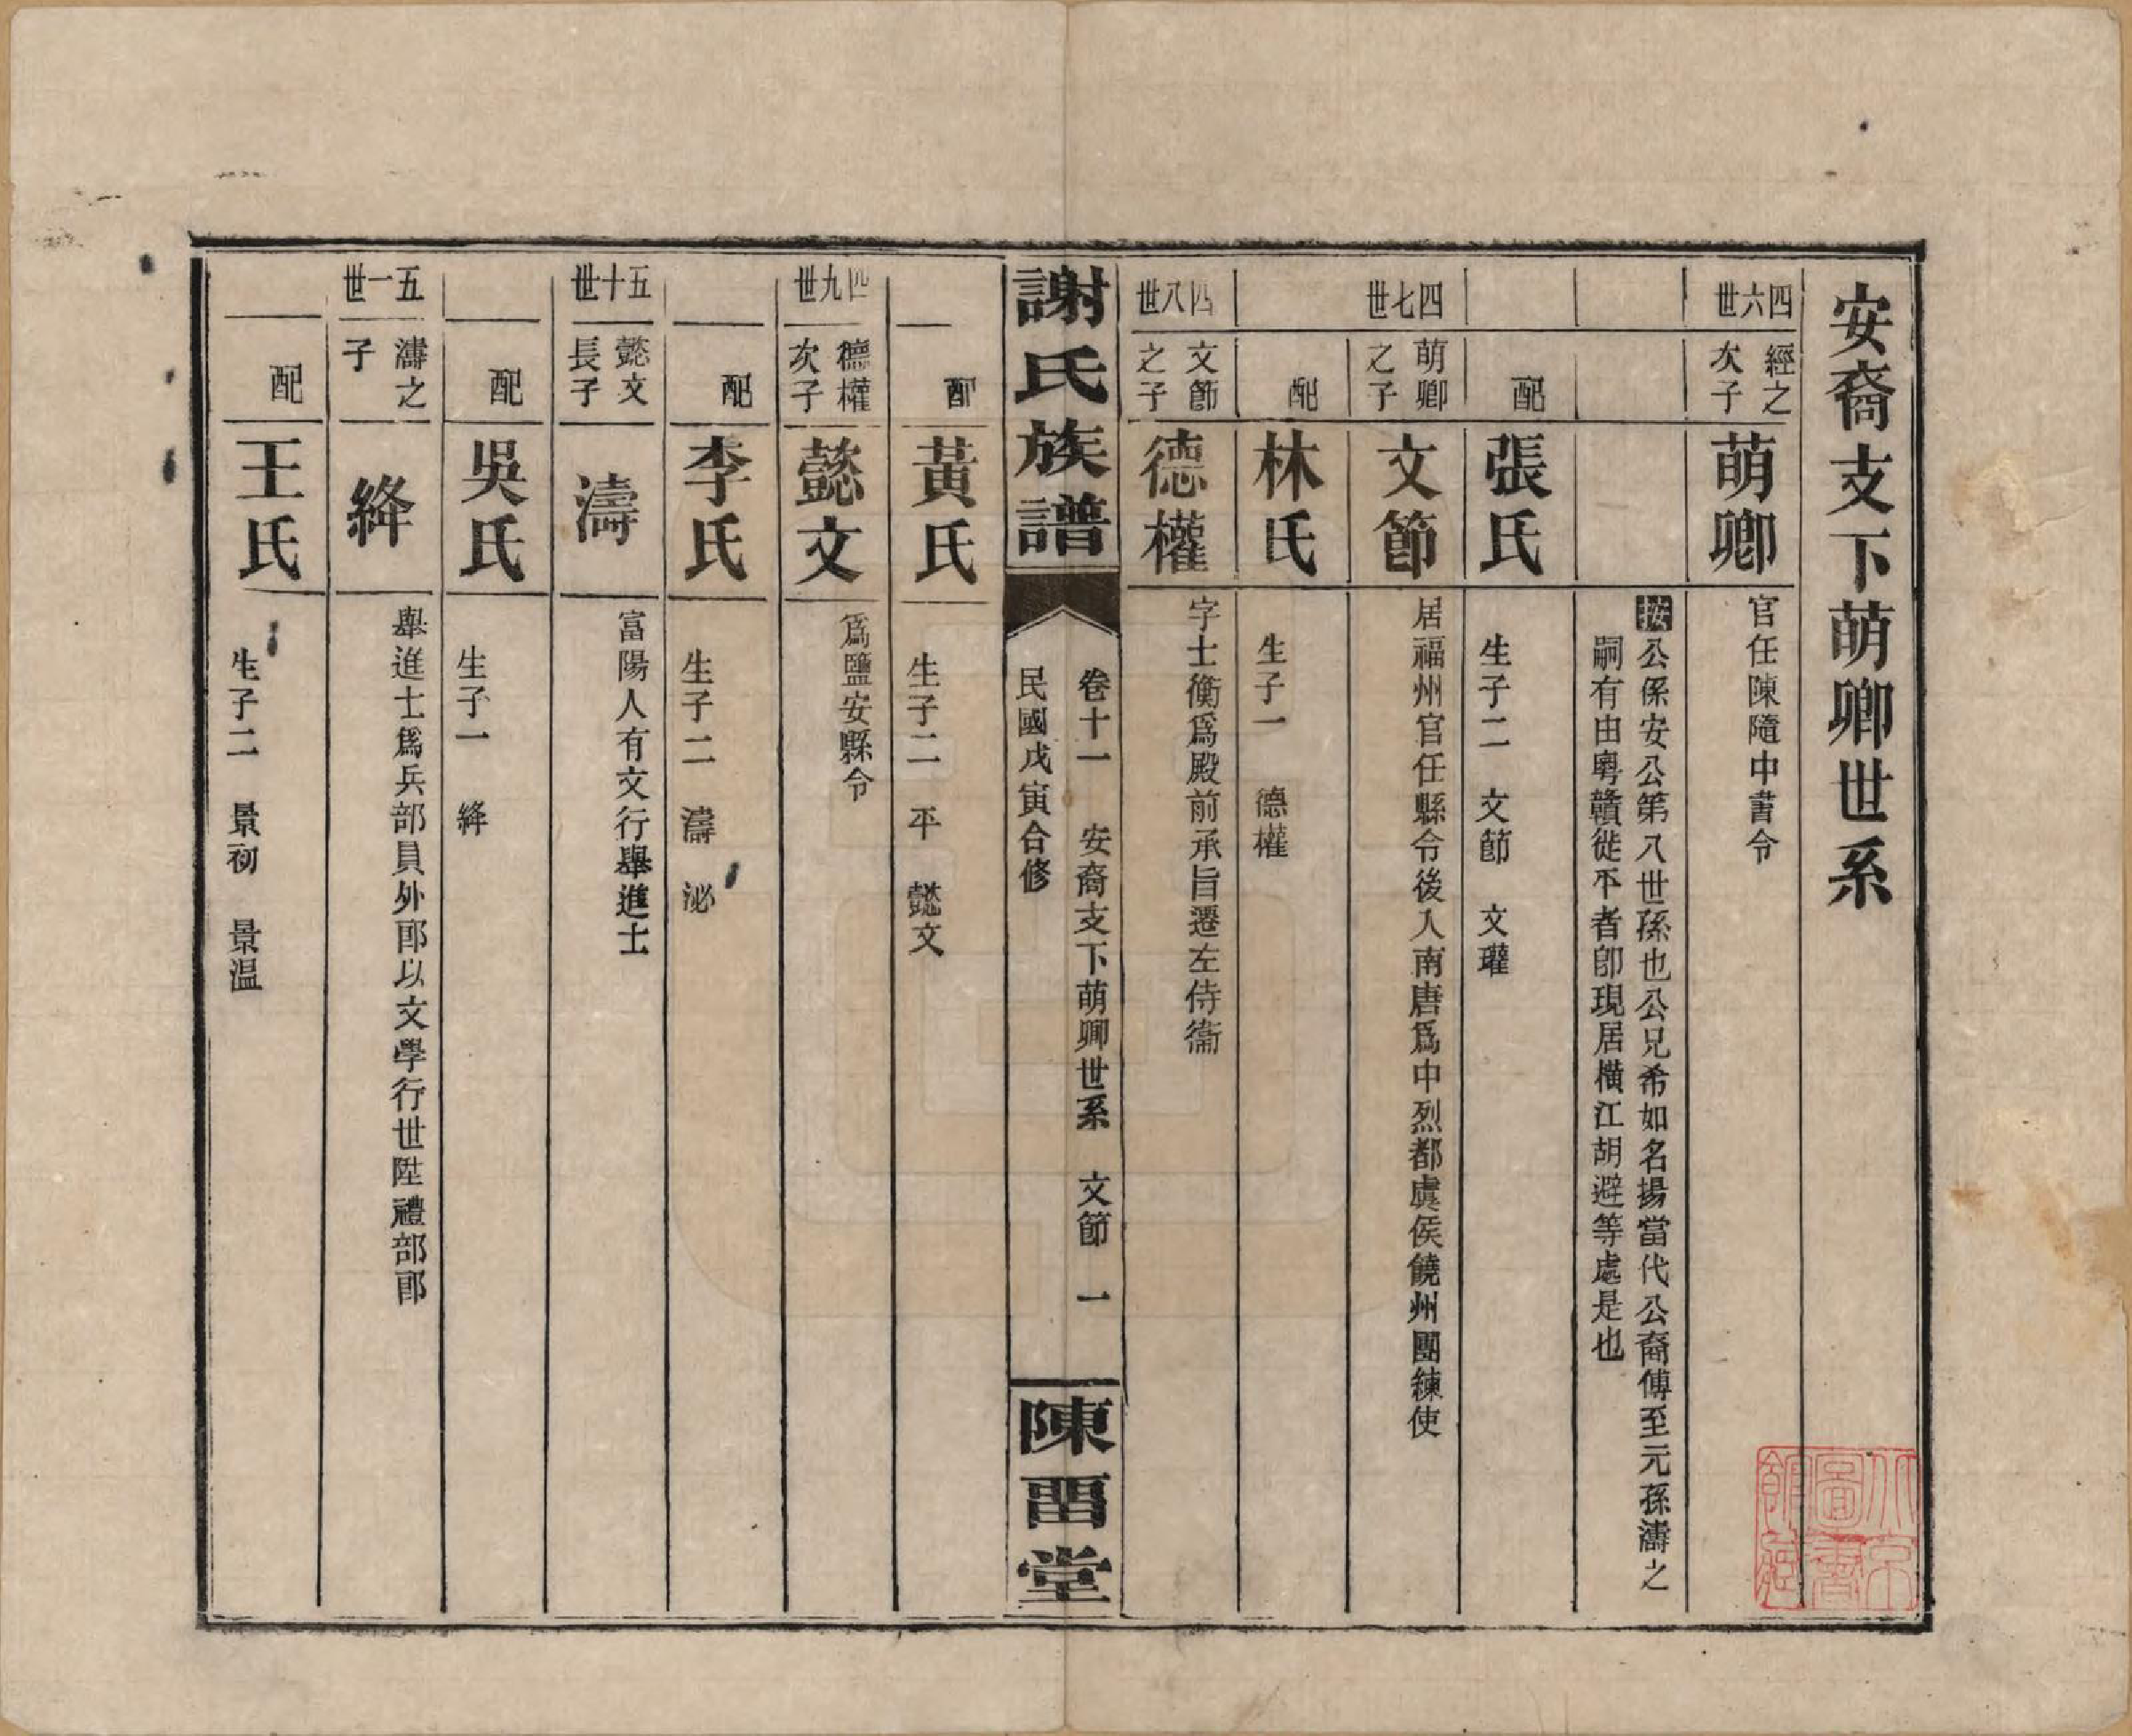 安裔支下萌卿世系
四六世
經之次子
萌卿
官任陳隨中書令
按公係安公第八世孫也公兄希如名揚當代公裔傅至元孫濤之
嗣有由粵贛徙不者卽現居橫江胡避等處是也
配
張氏
生子二 文節 文瓘
四七世
萌卿之子
文節
居福州官任縣令後入南唐爲中烈都虞侯饒州團練使
配
林氏
生子一 德權
四八世
文節之子
德權
字士衡爲殿前承旨遷左侍衞
謝氏族譜
卷十一 安裔支下萌卿世系 文節 一
民國戊寅合修
陳畱堂
配
黃氏
生子二 平 懿文
四九世
德權次子
懿文
爲鹽安縣令
配
李氏
生子二 濤 泌
五十世
懿文長子
濤
富陽人有文行舉進士
配
吳氏
生子一 絳
五一世
濤之子
絳
舉進士爲兵部員外郎以文學行世陞禮部郎
配
王氏
生子二 景初 景温